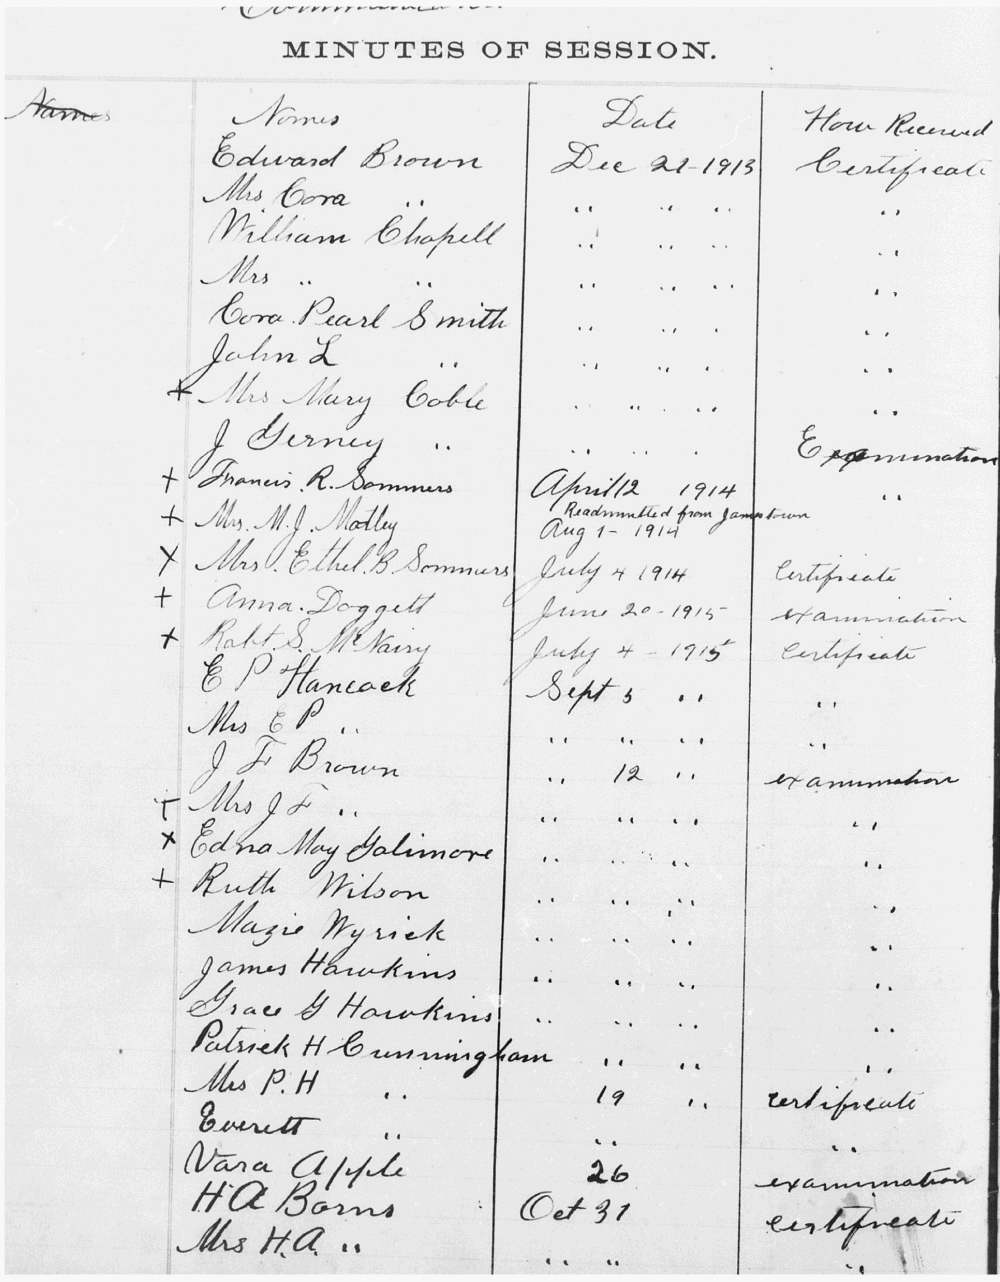 MINUTES OF SESSION.
Names Names Date How Received
Edward Brown Dec 21-1913 Certificate
Mrs Cora " " " " "
William Chapell " " " "
Mrs " " " " " "
Cora Pearl Smith " " " "
John L " " " " "
+ Mrs Mary Coble " " " "
J Gerney " " " " Examination
+ Francis. R. Sommers April 12 1914 "
+ Mrs. M. J. Motley Readmitted from Jamestown
Aug 1- 1914
x Mrs. Ethel. B Sommers July 4 1914 Certificate
+ Anna. Doggett June 20-1915 examination
x Robt. S. McNairy July 4 - 1915 Certificate
E P Hancock Sept 5 " "
Mrs E P " " " " "
J F Brown " 12 " examination
Mrs J F " " " " "
x Edna May Galimore " " " "
+ Ruth Wilson " " " "
Mazie Wyrick " " " "
James Hawkins " " " "
Grace G Hawkins " " " "
Patrick H Cunningham " " "
Mrs P. H " 19 " certificate
Everett " " "
Vara Apple 26 examination
H A Barns Oct 31 Certificate
Mrs H. A. " " " "